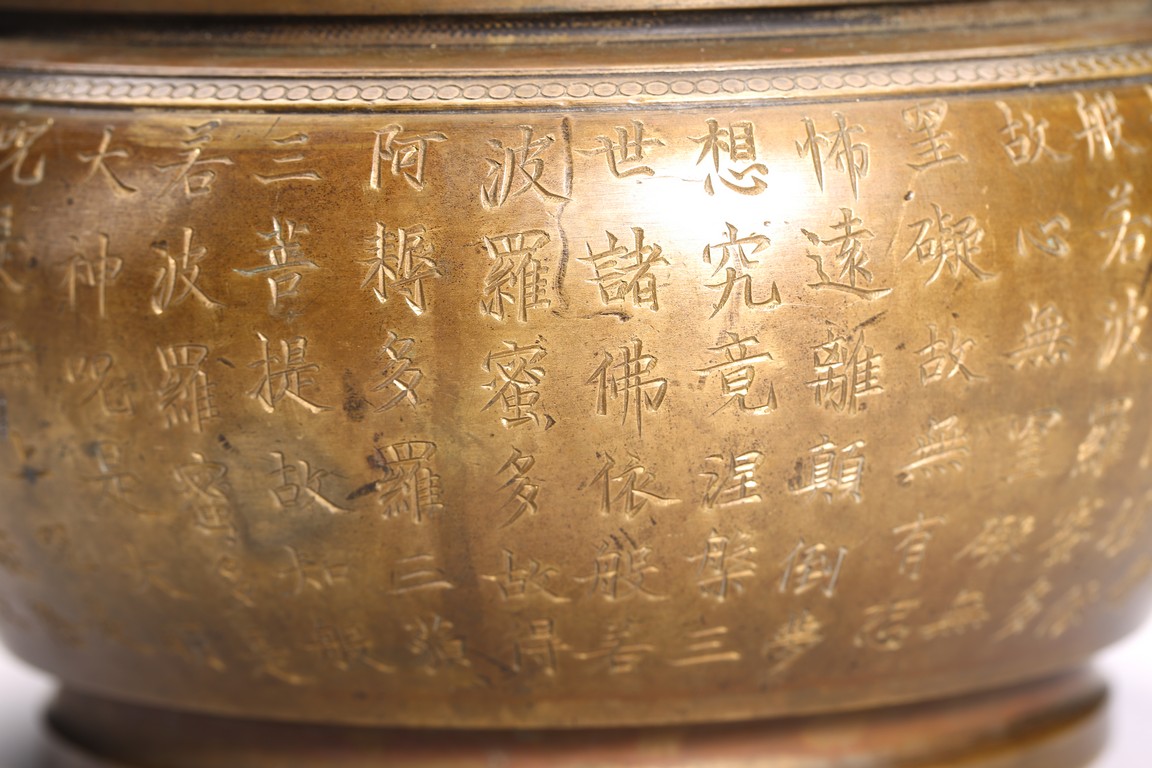 般若波羅蜜多
故心無罣礙無
罣礙故無有恐
怖遠離顛倒夢
想究竟涅槃三
世諸佛依般若
波羅蜜多故得
阿耨多羅三藐
三菩提故知般
若波羅蜜多是
大神呪是
呪